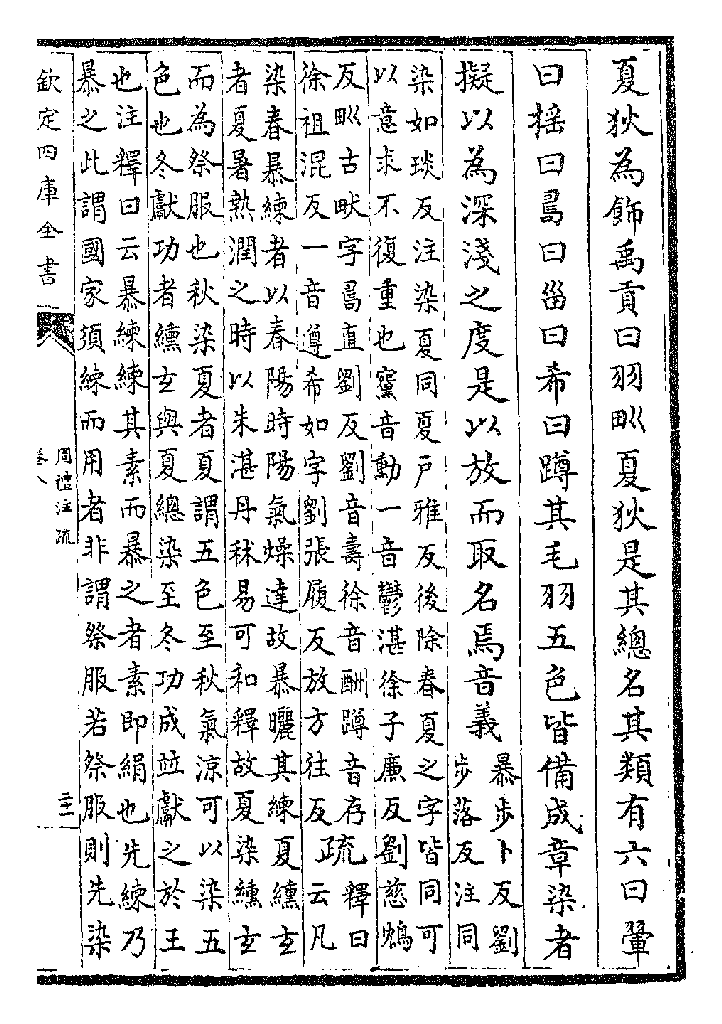 夏狄為飾禹貢曰羽畎夏狄是其總名其類有六曰翬
曰搖曰䎺曰甾曰希曰蹲其毛羽五色皆備成章染者
擬以為深淺之度是以放而取名焉音義
暴步卜反劉
步落反注同
染如琰反注染夏同夏戸雅反後除春夏之字皆同可
以意求不復重也窻音勳一音鬱湛徐子廉反劉慈鴆
反畎古畎字䎺直劉反劉音壽徐音酬蹲音存
徐祖混反一音遵希如字劉張履反放方往反
疏釋曰
云凡
染春暴練者以春陽時陽氣燥達故暴曬其練夏纁玄
者夏暑熱潤之時以朱湛丹秫易可和釋故夏染纁玄
而為祭服也秋染夏者夏謂五色至秋氣凉可以染五
色也冬獻功者纁玄與夏總染至冬功成並獻之於王
也注釋曰云暴練練其素而暴之者素即絹也先練乃
暴之此謂國家須練而用者非謂祭服若祭服則先染
欽定四庫全書
周禮注疏
卷八